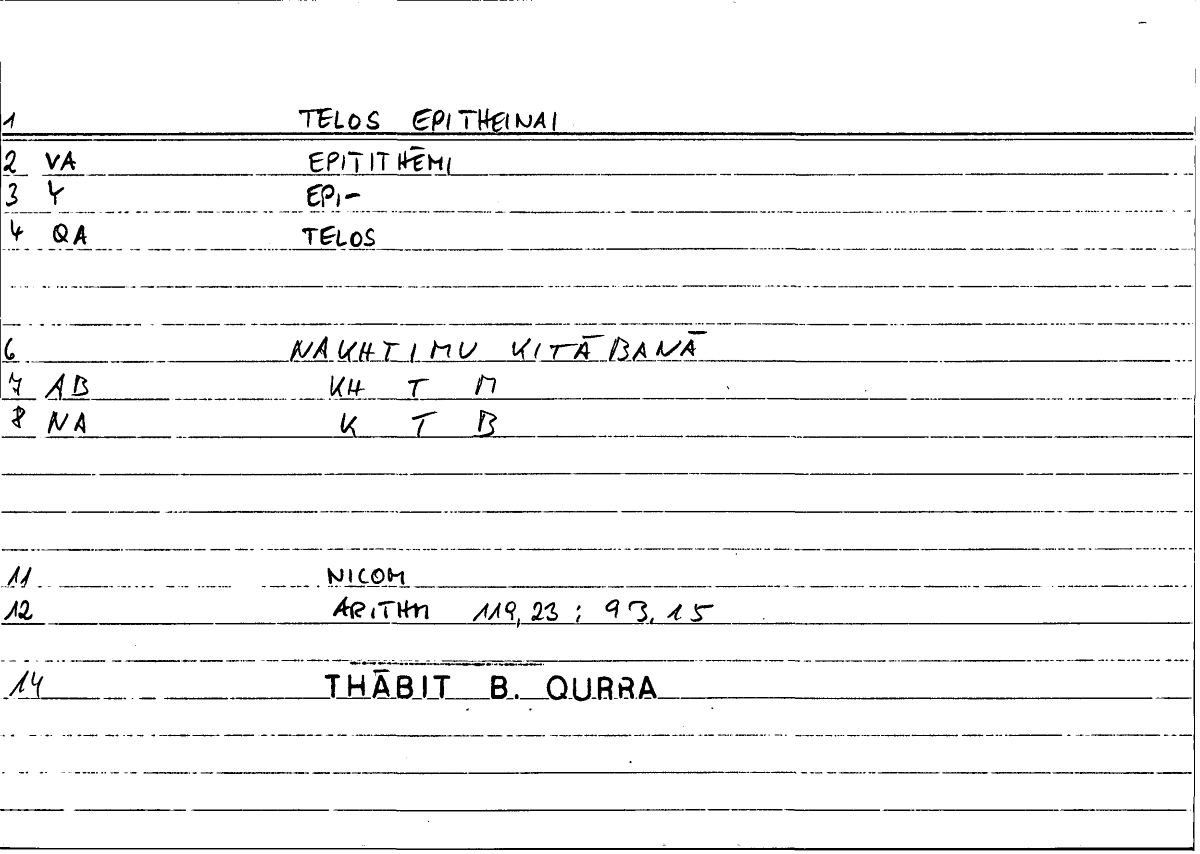 1 TELOS EPITHEINAI
2 VA EPITITHĒMI
3 Y EPI-
4 QA TELOS
6 NAKHTIMU KITĀBANĀ
7 AB KH T M
8 NA K T B
11 NICOM
12 ARITHM 119,23 ; 93,15
14 THĀBIT B. QURRA